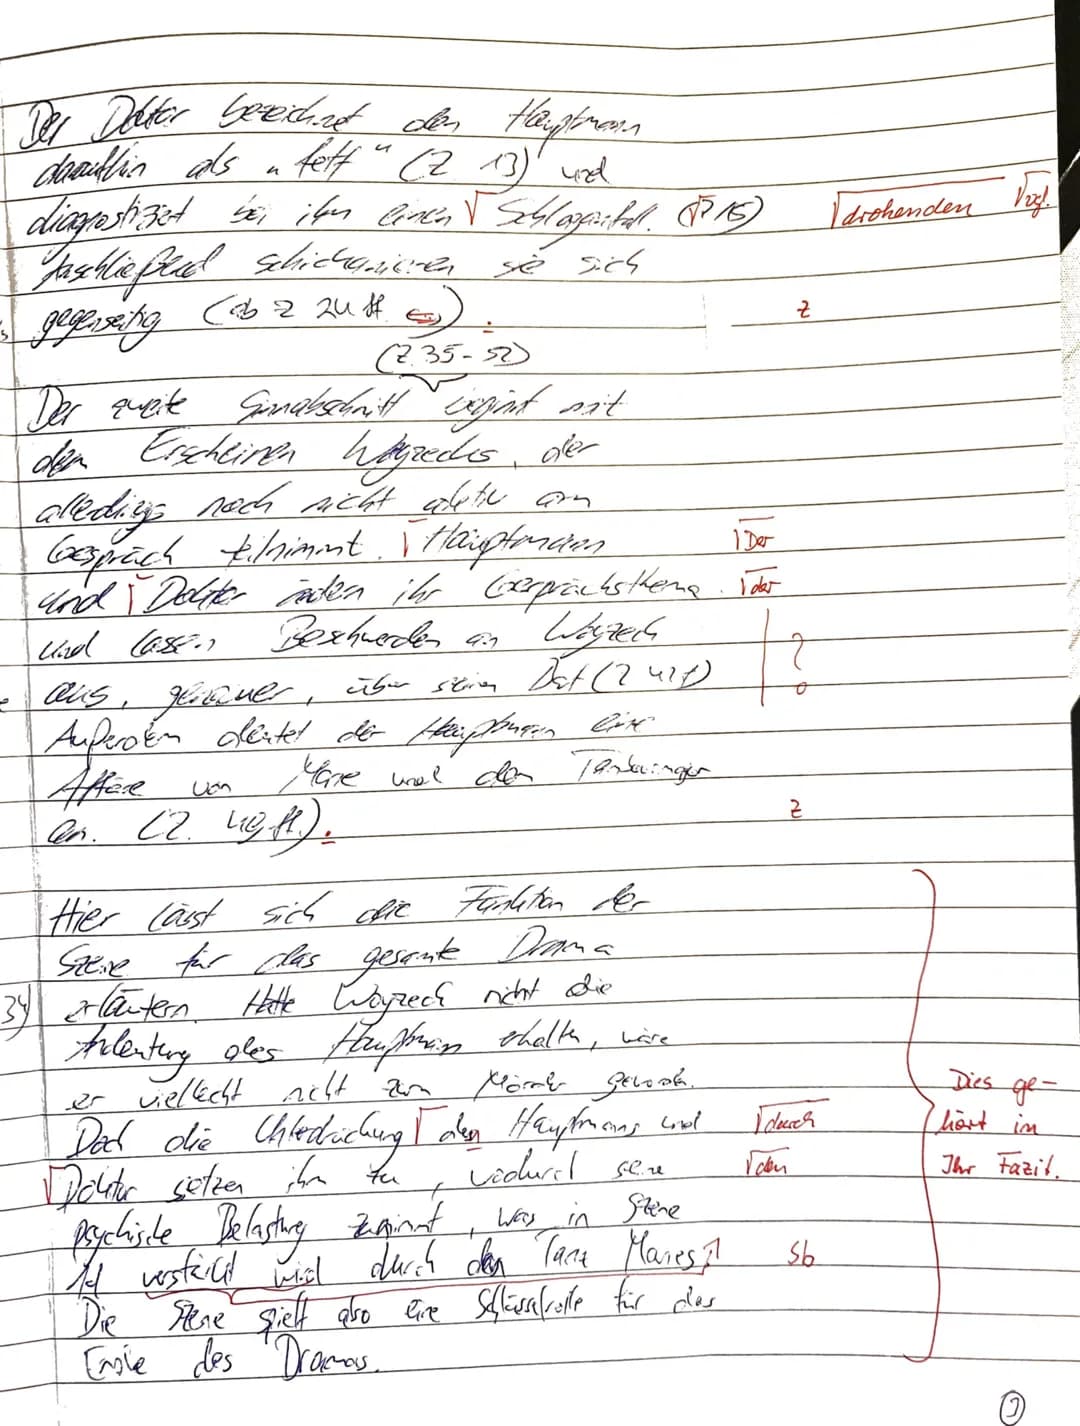 Der Doktor bezeichnet den Hauptmann
daraufhin als „fett“ (Z 13) und
diagnostiziert bei ihm einen √ Schlaganfall. (√Z 15) √drohenden √vgl.
Anschließend schickanieren sie sich
gegenseitig (ab Z 24 ff. ). Z
(Z. 35-52)
Der zweite Sinnabschnitt beginnt mit
dem Erscheinen Woyzecks, der
allerdings noch nicht aktiv am
Gespräch teilnimmt. √ Hauptmann √Der
und √ Doktor ändern ihr Gesprächsthema √der
und lassen Beschwerden an Woyzeck ?
aus, genauer, über seinen Bart (Z 42f)
Außerdem deutet der Hauptmann eine
Affäre von Marie und dem Tambourmajor
an. (Z. 49 ff.). Z
Hier lässt sich die Funktion der
Szene für das gesamte Drama
34) erläutern. Hätte Woyzeck nicht die
Andeutung des Hauptmann erhalten, wäre
er vielleicht nicht zum Mörder geworden. Dies ge-
Doch die Unterdrückung √ den Hauptmanns und √durch hört in
√ Doktor setzen ihm zu, wodurch seine √den Ihr Fazit.
psychische Belastung zunimmt, was in Szene
11 verstärkt wird durch den Tanz Maries. Sb
Die Szene spielt also eine Schlüsselrolle für das
Ende des Dramas.